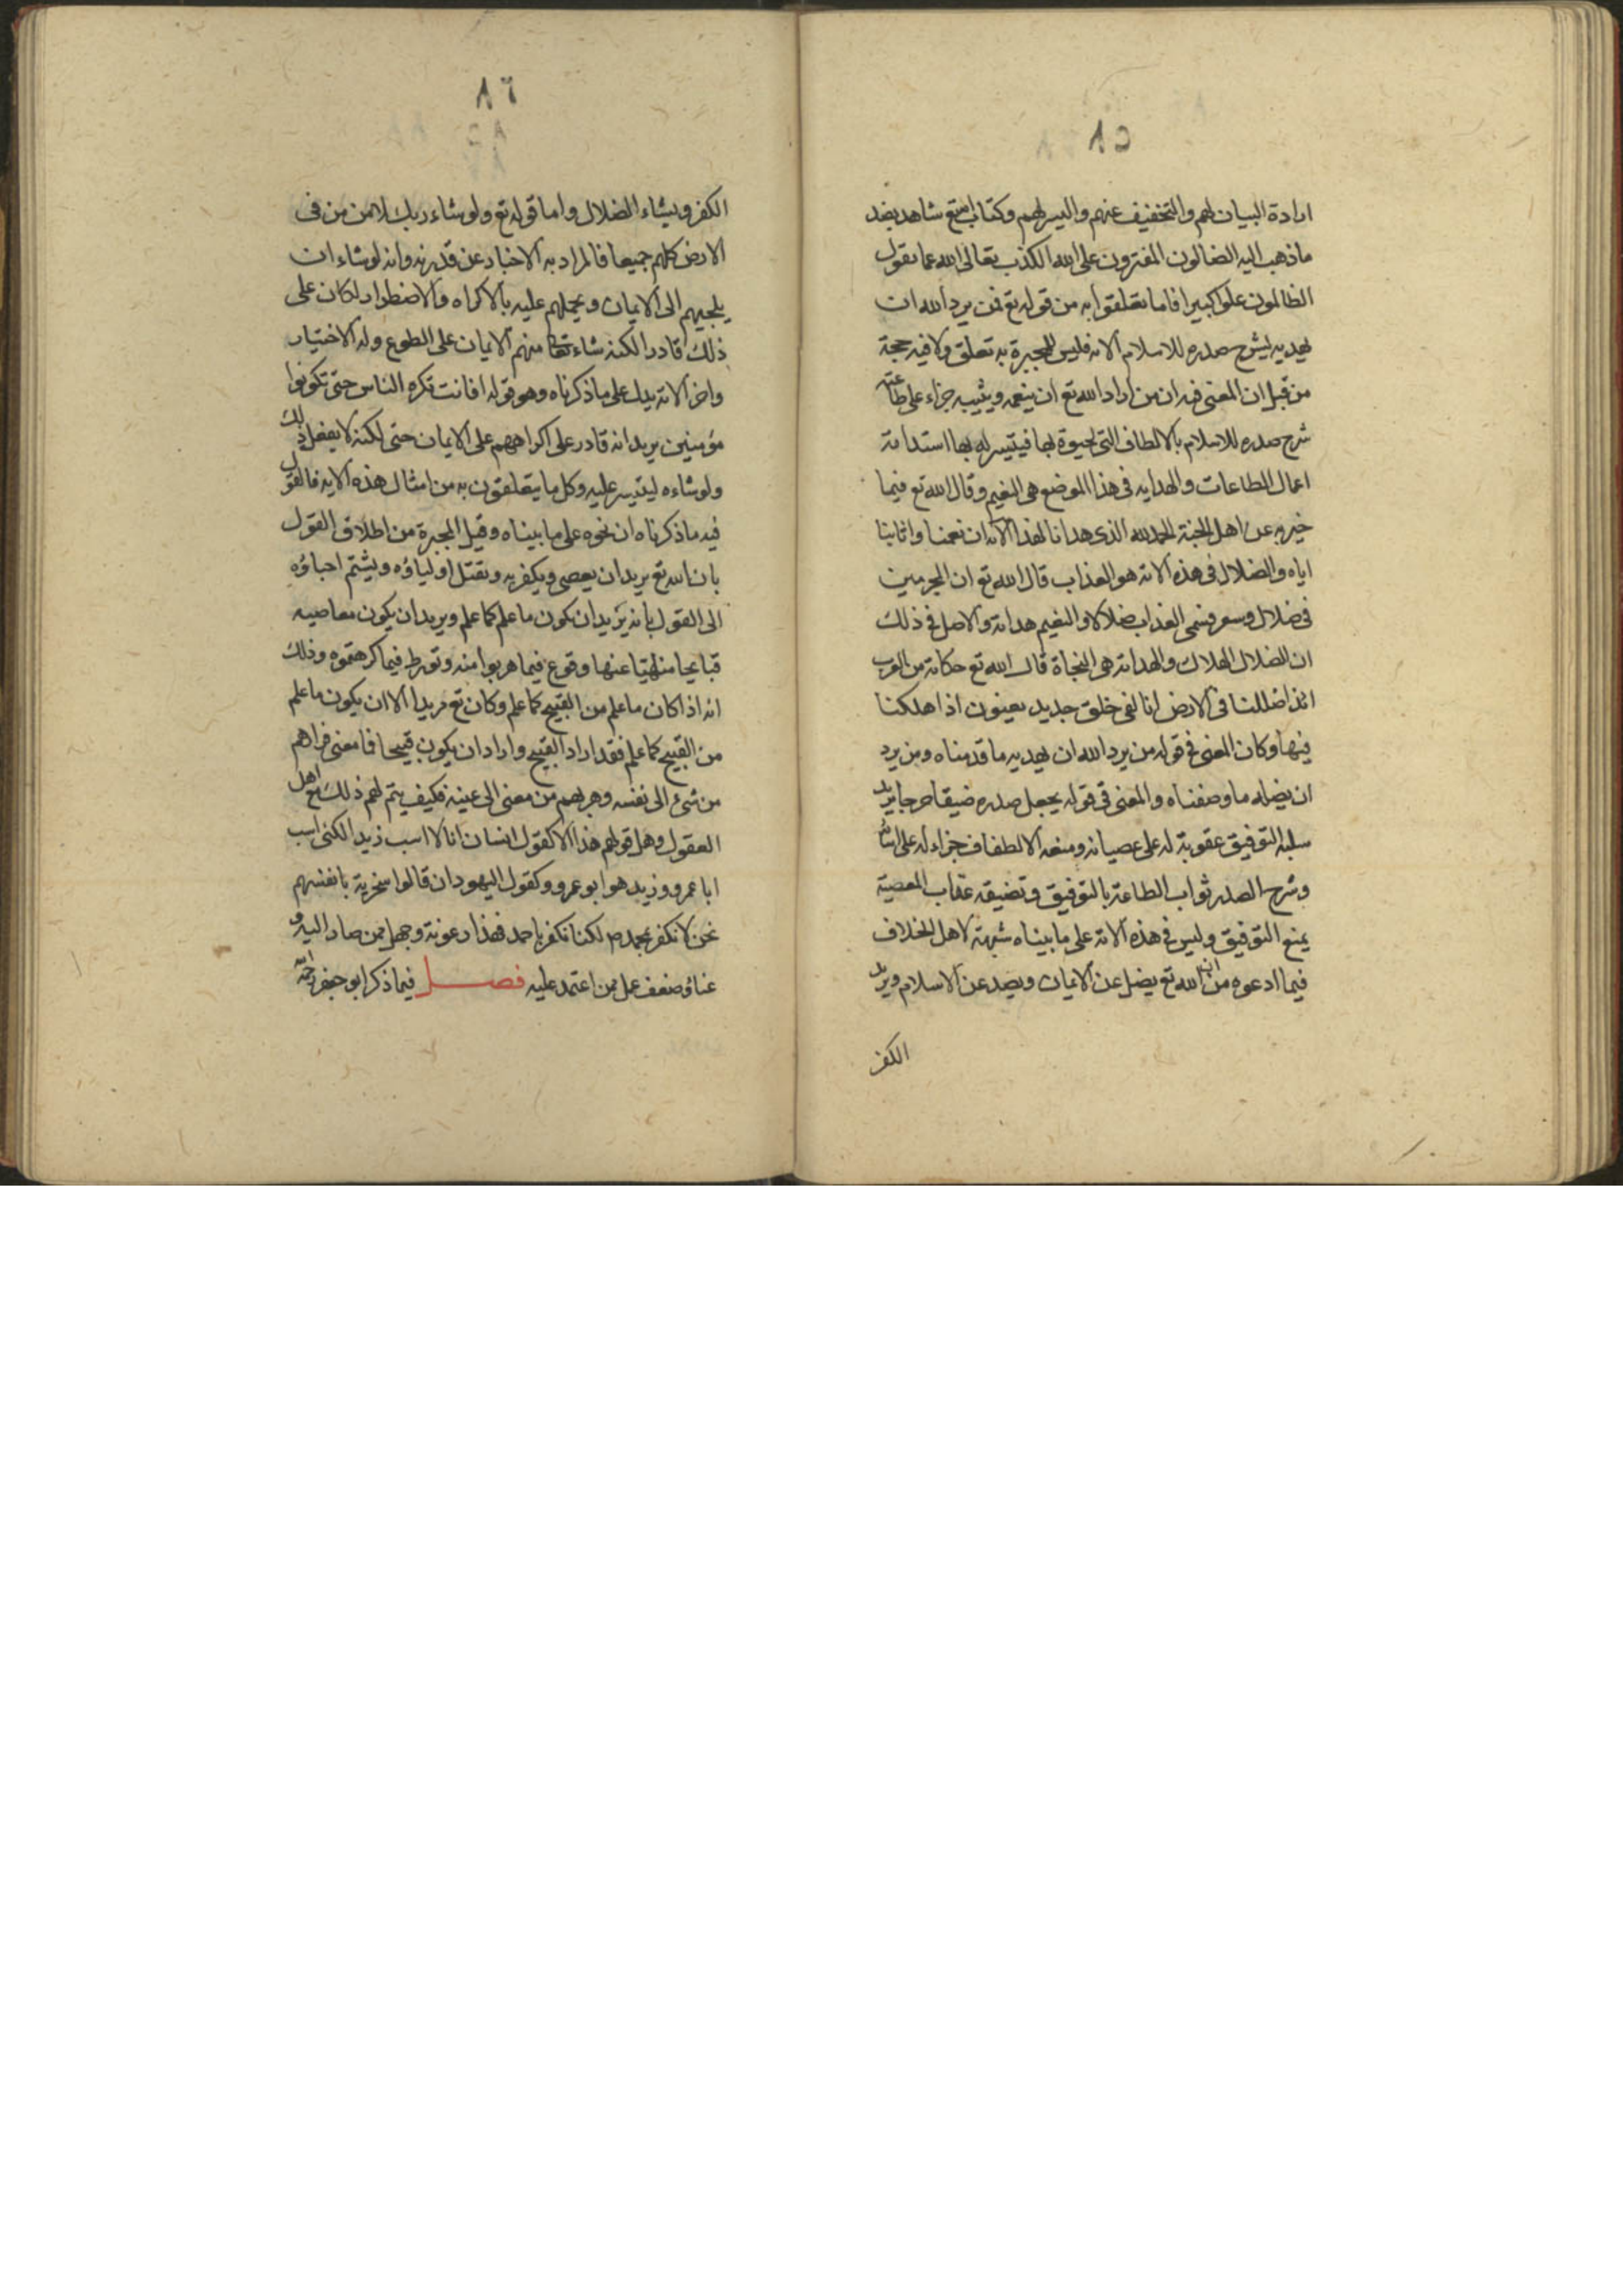 ٨٥
ارادة البيان لهم والتخفيف عنهم واليسر لهم وكتاب الله تع شاهد بضد
ما ذهب اليه الضالون المفترون على الله الكذب تعالى الله عما يقول
الظالمون علوا كبيرا فاما تعلقوا به من قوله تع فمن يرد الله ان
يهديه يشرح صدره للاسلام الاية فليس للمجبرة به تعلق ولا فيه حجة
من قبل ان المعنى فيه ان من اراد الله تع ان ينعمه ويثيبه جزاء على طاعته
شرح صدره للاسلام بالالطاف التى يحبوه بها فيتيسر له بها استدامة
اعمال الطاعات والهداية فى هذا الموضع هى النعيم وقال الله تع فيما
خبر به عن اهل الجنة الحمد لله الذى هدانا لهذا الاية ان نعمنا واثابنا
اياه والضلال فى هذه الاية هو العذاب قال الله تع ان المجرمين
فى ضلال وسعر فسمى العذاب ضلالا والنعيم هداية والاصل فى ذلك
ان الضلال الهلاك والهداية هى النجاة قال الله تع حكاية من العرب
ائذا ضللنا فى الارض انا لفى خلق جديد يعنون اذا هلكنا
فيها وكان المعنى فى قوله من يرد الله ان يهديه ما قدمناه ومن يرد
ان يضله ما وصفناه والمعنى فى قوله يجعل صدره ضيقا حرجا يريد
سلبه التوفيق عقوبة له على عصيانه ومنعه الالطفاف جزاء له على
وشرح الصدر ثواب الطاعة بالتوفيق وتضيقه عقاب المعصية
بمنع التوفيق وليس فى هذه الاية على ما بيناه شبهة لاهل الخلاف
فيما ادعوه من ان الله تع يضل عن الايمان ويصد عن الاسلام ويريد
الكفر
٨٦
الكفر ويشاء الضلال واما قوله تع ولو شاء ربك لامن من فى
الارض كلهم جميعا فالمراد به الاخبار عن قدرته وانه لو شاء ان
يلجيهم الى الايمان ويحملهم عليه بالاكراه والاضطرار لكان على
ذلك قادرا لكنه شاء منهم الايمان على الطوع وله الاختيار
واخر الاية يدل على ما ذكرناه وهو قوله افانت تكره الناس حتى تكونوا
مؤمنين يريد انه قادر على اكراههم على الايمان حتى لكنه لا يفعل ذلك
ولو شاءه ليتيسر عليه وكل ما يتعلقون به من امثال هذه الاية فالقول
فيه ما ذكرناه ان نحوه على ما بيناه وقيل المجبرة من اطلاق القول
بان الله تع يريد ان يعصى ويكفر به ويقتل اولياؤه ويشتم احباؤه
الى القول بانه يريد ان يكون ما علم كما علم ويريد ان يكون معاصيه
قبايحا منهيا عنها وقوع فيما هربوا منه وتورط فيما كرهتموه وذلك
انه اذا كان ما علم من القبيح كما علم وكان تع مريدا الا ان يكون ما علم
من القبيح كما علم فقد اراد القبيح واراد ان يكون قبيحا فما معنى فراهم
من شئ الى نفسه وهربهم من معنى الى عينه فكيف يتم لهم ذلك مع اهل
العقول وهل قولهم هذا الا كقول انسان انا لا اسب زيدا لكنى اسب
ابا عمرو وزيد هو ابو عمرو وكقول اليهود ان قالوا سخرية بانفسهم
نحن لا نكفر بمحمد ص لكنا نكفر باحمد فهذا رعونة وجهل ممن صار اليه و
عناؤ ضعف عمل ممن اعتمد عليه فصل فيما ذكر ابو جعفر رحمه الله